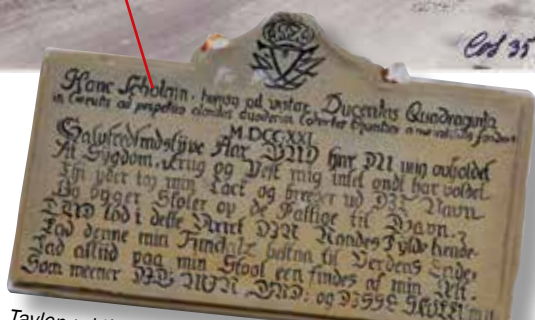 Cod 35
Hanc Scholam, ad instar Ducentas Quadraginta
in ad perpetua
MDCCXXI
Halvtredsindstyve Aar GUD har DU mig opholdet
At Sygdom, Krig og Pest mig intet ondt har voldet
Thi yder jeg min Tack og breeder ud DIT Navn
Og bygger Skoler op de Fattige til Gavn
GUD lad i dette Verck DIN Naades Fylde kiende
Lad denne min Fundatz bestaa til Verdens Ende
Lad altid paa min Stool een findes af min Æt
Som meener DIG MIN GUD og DISSE SKOLER